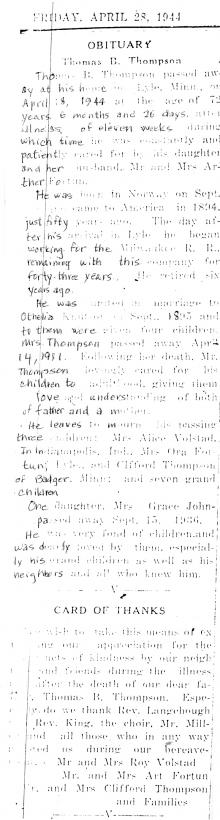 FRIDAY, APRIL 28, 1944
OBITUARY
Thomas B. Thompson
Thomas B. Thompson passed aw-
ay at his home in Lyle, Minn., on
April 8, 1944 at the age of 72
years 6 months and 26 days, after
illness, of eleven weeks during
which time he was constantly and
patiently cared for by his daughter
and her husband, Mr and Mrs Ar-
ther Fortun.
He was born in Norway on Sept.
came to America in 1894,
just fifty years ago. The day af-
ter his arrival in Lyle he began
working for the Milwaukee R. R.,
remaining with this company for
forty-three years. He retired six
years ago.
He was united in marriage to
Othelia in Sept., 1895 and
to them were given four children.
Mrs. Thompson passed away April
14, 1911. Following her death, Mr.
Thompson lovingly cared for his
children to adulthood, giving them
love and understanding of both
of father and a mother.
He leaves to mourn his passing
three children: Mrs Alice Volstad,
In Indianapolis, Ind., Mrs Ora For-
tun, Lyle, and Clifford Thompson
of Badger, Minn; and seven grand
children
One daughter, Mrs. Grace John-
passed away Sept. 15, 1936.
He was very fond of children, and
was dearly loved by them, especial-
ly his grand children as well as his
neighbors and all who knew him.
V
CARD OF THANKS
wish to take this means of ex
ing our appreciation for the
acts of kindness by our neigh
and friends during the illness
after the death of our dear fa-
, Thomas B. Thompson. Espe-
y, do we thank Rev. Langehough
Rev. King, the choir, Mr. Mill-
and all those who in any way
ted us during our bereave-
Mr and Mrs Roy Volstad
Mr. and Mrs Art Fortun
r. and Mrs Clifford Thompson
and Families
V